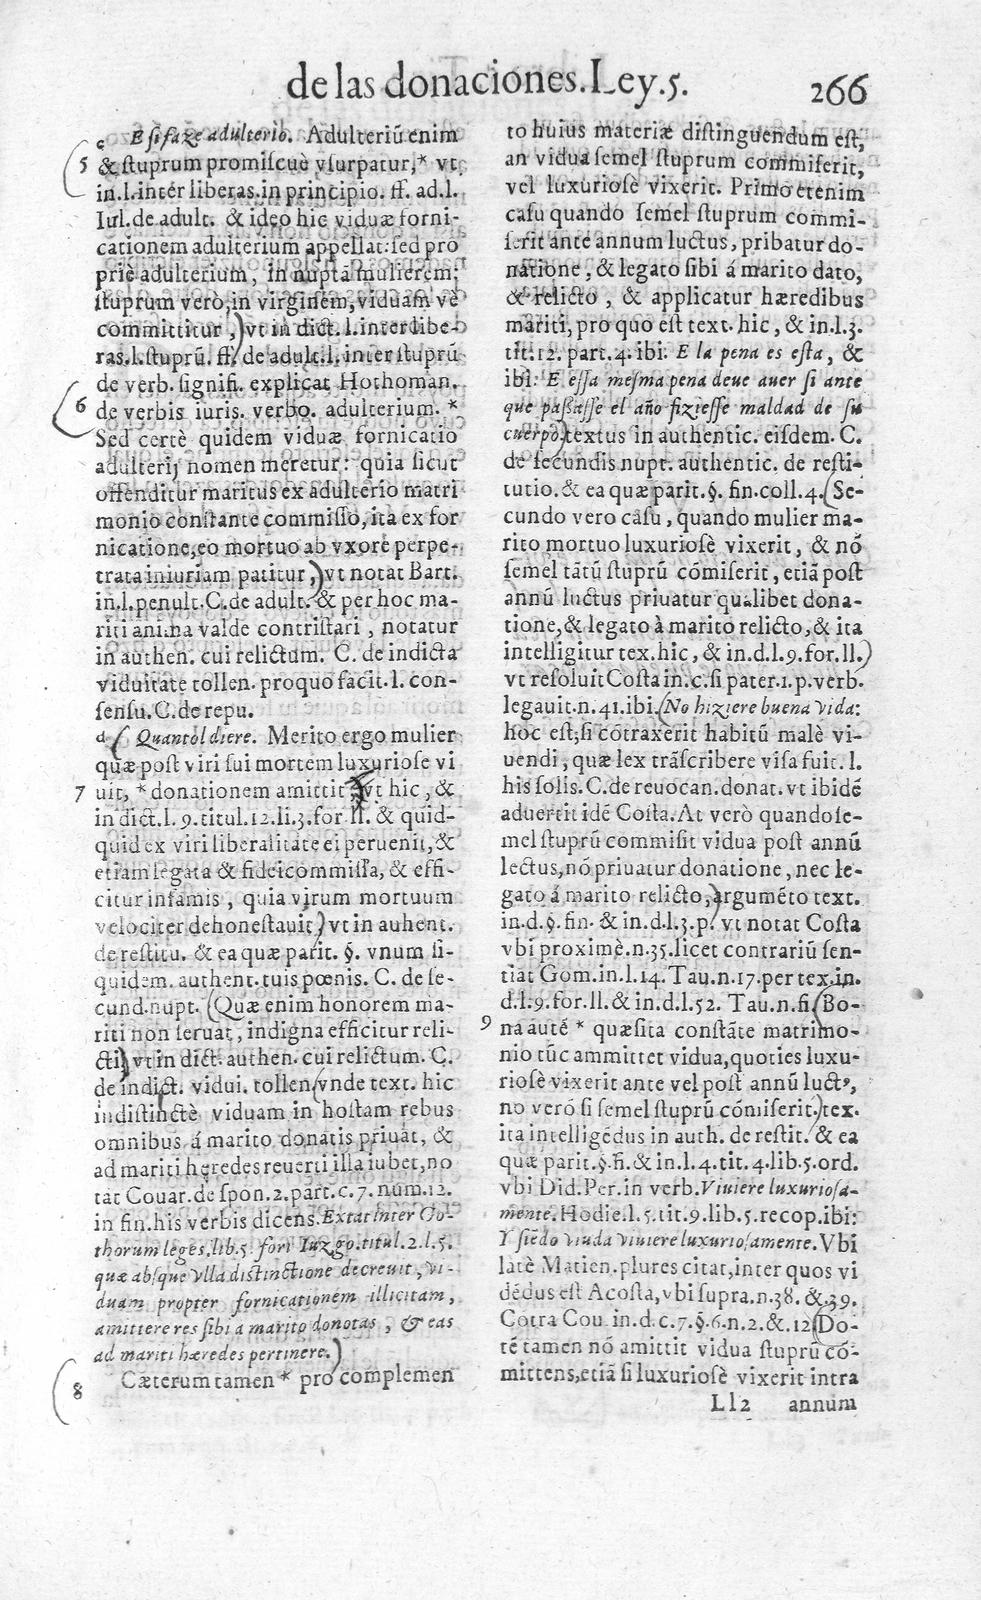 de las donaciones. Ley. 5. 266
c E si faze adulterio. Adulteriũ enim
5 & stuprum promiscuè vsurpatur, * vt
in. l. inter liberas. in principio. ff. ad. l.
Iul. de adult. & ideo hic viduæ forni-
cationem adulterium appellat: sed pro
priè adulterium, in nuptã mulierem:
stuprum verò, in virginem, viduam vè
committitur, vt in dict. l. inter libe-
ras. l. stuprũ. ff. de adult. l. inter stuprũ
de verb. signifi. explicat Hothoman.
6 de verbis iuris. verbo. adulterium. *
Sed certè quidem viduæ fornicatio
adulterij nomen meretur: quia sicut
offenditur maritus ex adulterio matri
monio constante commisso, ita ex for
nicatione, eo mortuo ab vxore perpe-
trata iniuriam patitur, vt notat Bart.
in. l. penult. C. de adult. & per hoc ma-
riti anima valde contristari, notatur
in authen. cui relictum. C. de indicta
viduitate tollen. proquo facit. l. con-
sensu. C. de repu.
d Quantol diere. Merito ergo mulier
quæ post viri sui mortem luxuriose vi
7 uit, * donationem amittit vt hic, &
in dict. l. 9. titul. 12. li. 3. for. ll. & quid-
quid ex viri liberalitate ei peruenit, &
etiam legata & fideicommissa, & effi-
citur infamis, quia virum mortuum
velociter dehonestauit, vt in auhent.
de restitu. & ea quæ parit. §. vnum si-
quidem. authent. tuis pœnis. C. de se-
cund. nupt. Quæ enim honorem ma-
riti non seruat, indigna efficitur reli-
cti, vt in dict. authen. cui relictum. C.
de indict. vidui. tollen. vnde text. hic
indistinctè viduam in hostam rebus
omnibus á marito donatis priuat, &
ad mariti hęredes reuerti illa iubet, no
tat Couar. de spon. 2. part. c. 7. num. 12.
in fin. his verbis dicens. Extat inter Go-
thorum leges. lib. 5. fori Iuzgo. titul. 2. l. 5.
quæ absque vlla distinctione decreuit, vi-
duam propter fornicationem illicitam,
amittere res sibi a marito donotas, & eas
ad mariti hæredes pertinere.
8 Cæterum tamen * pro complemen
to huius materiæ distinguendum est,
an vidua semel stuprum commiserit,
vel luxuriosè vixerit. Primo etenim
casu quando semel stuprum commi-
serit ante annum luctus, pribatur do-
natione, & legato sibi á marito dato,
& relicto, & applicatur hæredibus
mariti, pro quo est text. hic, & in. l. 3.
tit. 12. part. 4. ibi. E la pena es esta, &
ibi. E essa mesma pena deue auer si ante
que passasse el año fiziesse maldad de su
cuerpo. textus in authentic. eisdem. C.
de secundis nupt. authentic. de resti-
tutio. & ea quæ parit. §. fin. coll. 4. Se-
cundo vero casu, quando mulier ma-
rito mortuo luxuriosè vixerit, & nõ
semel tãtũ stuprũ cõmiserit, etiã post
annũ luctus priuatur qualibet dona-
tione, & legato à marito relicto, & ita
intelligitur tex. hic, & in. d. l. 9. for. ll.
vt resoluit Costa in. c. si pater. 1. p. verb.
legauit. n. 41. ibi. No hiziere buena vida:
hoc est; si cõtraxerit habitũ malè vi-
uendi, quæ lex trãscribere visa fuit. l.
his solis. C. de reuocan. donat. vt ibidẽ
aduertit idẽ Costa. At verò quando se-
mel stuprũ commisit vidua post annũ
lectus, nõ priuatur donatione, nec le-
gato á marito relicto, argumẽto text.
in. d. §. fin. & in. d. l. 3. p. vt notat Costa
vbi proximè. n. 35. licet contrariũ sen-
tiat Gom. in. l. 14. Tau. n. 17. per tex. in.
d. l. 9. for. ll. & in. d. l. 52. Tau. n. fi. Bo-
9 na autẽ * quæsita constãte matrimo-
nio tũc ammittet vidua, quoties luxu-
riosè vixerit ante vel post annũ luctꝰ,
no veró si semel stuprũ cõmiserit. tex.
ita intelligẽdus in auth. de restit. & ea
quæ parit. §. fi. & in. l. 4. tit. 4. lib. 5. ord.
vbi Did. Per. in verb. Viuiere luxuriosa-
mente. Hodie. l. 5. tit. 9. lib. 5. recop. ibi:
Y siẽdo viuda viuiere luxuriosamente. Vbi
latè Matien. plures citat, inter quos vi
dẽdus est Acosta, vbi supra. n. 38. & 39.
Cõtra Cou. in. d. c. 7. §. 6. n. 2. & 12. Do-
tẽ tamen nõ amittit vidua stuprũ cõ-
mittens, etiã si luxuriosè vixerit intra
Ll2 annum